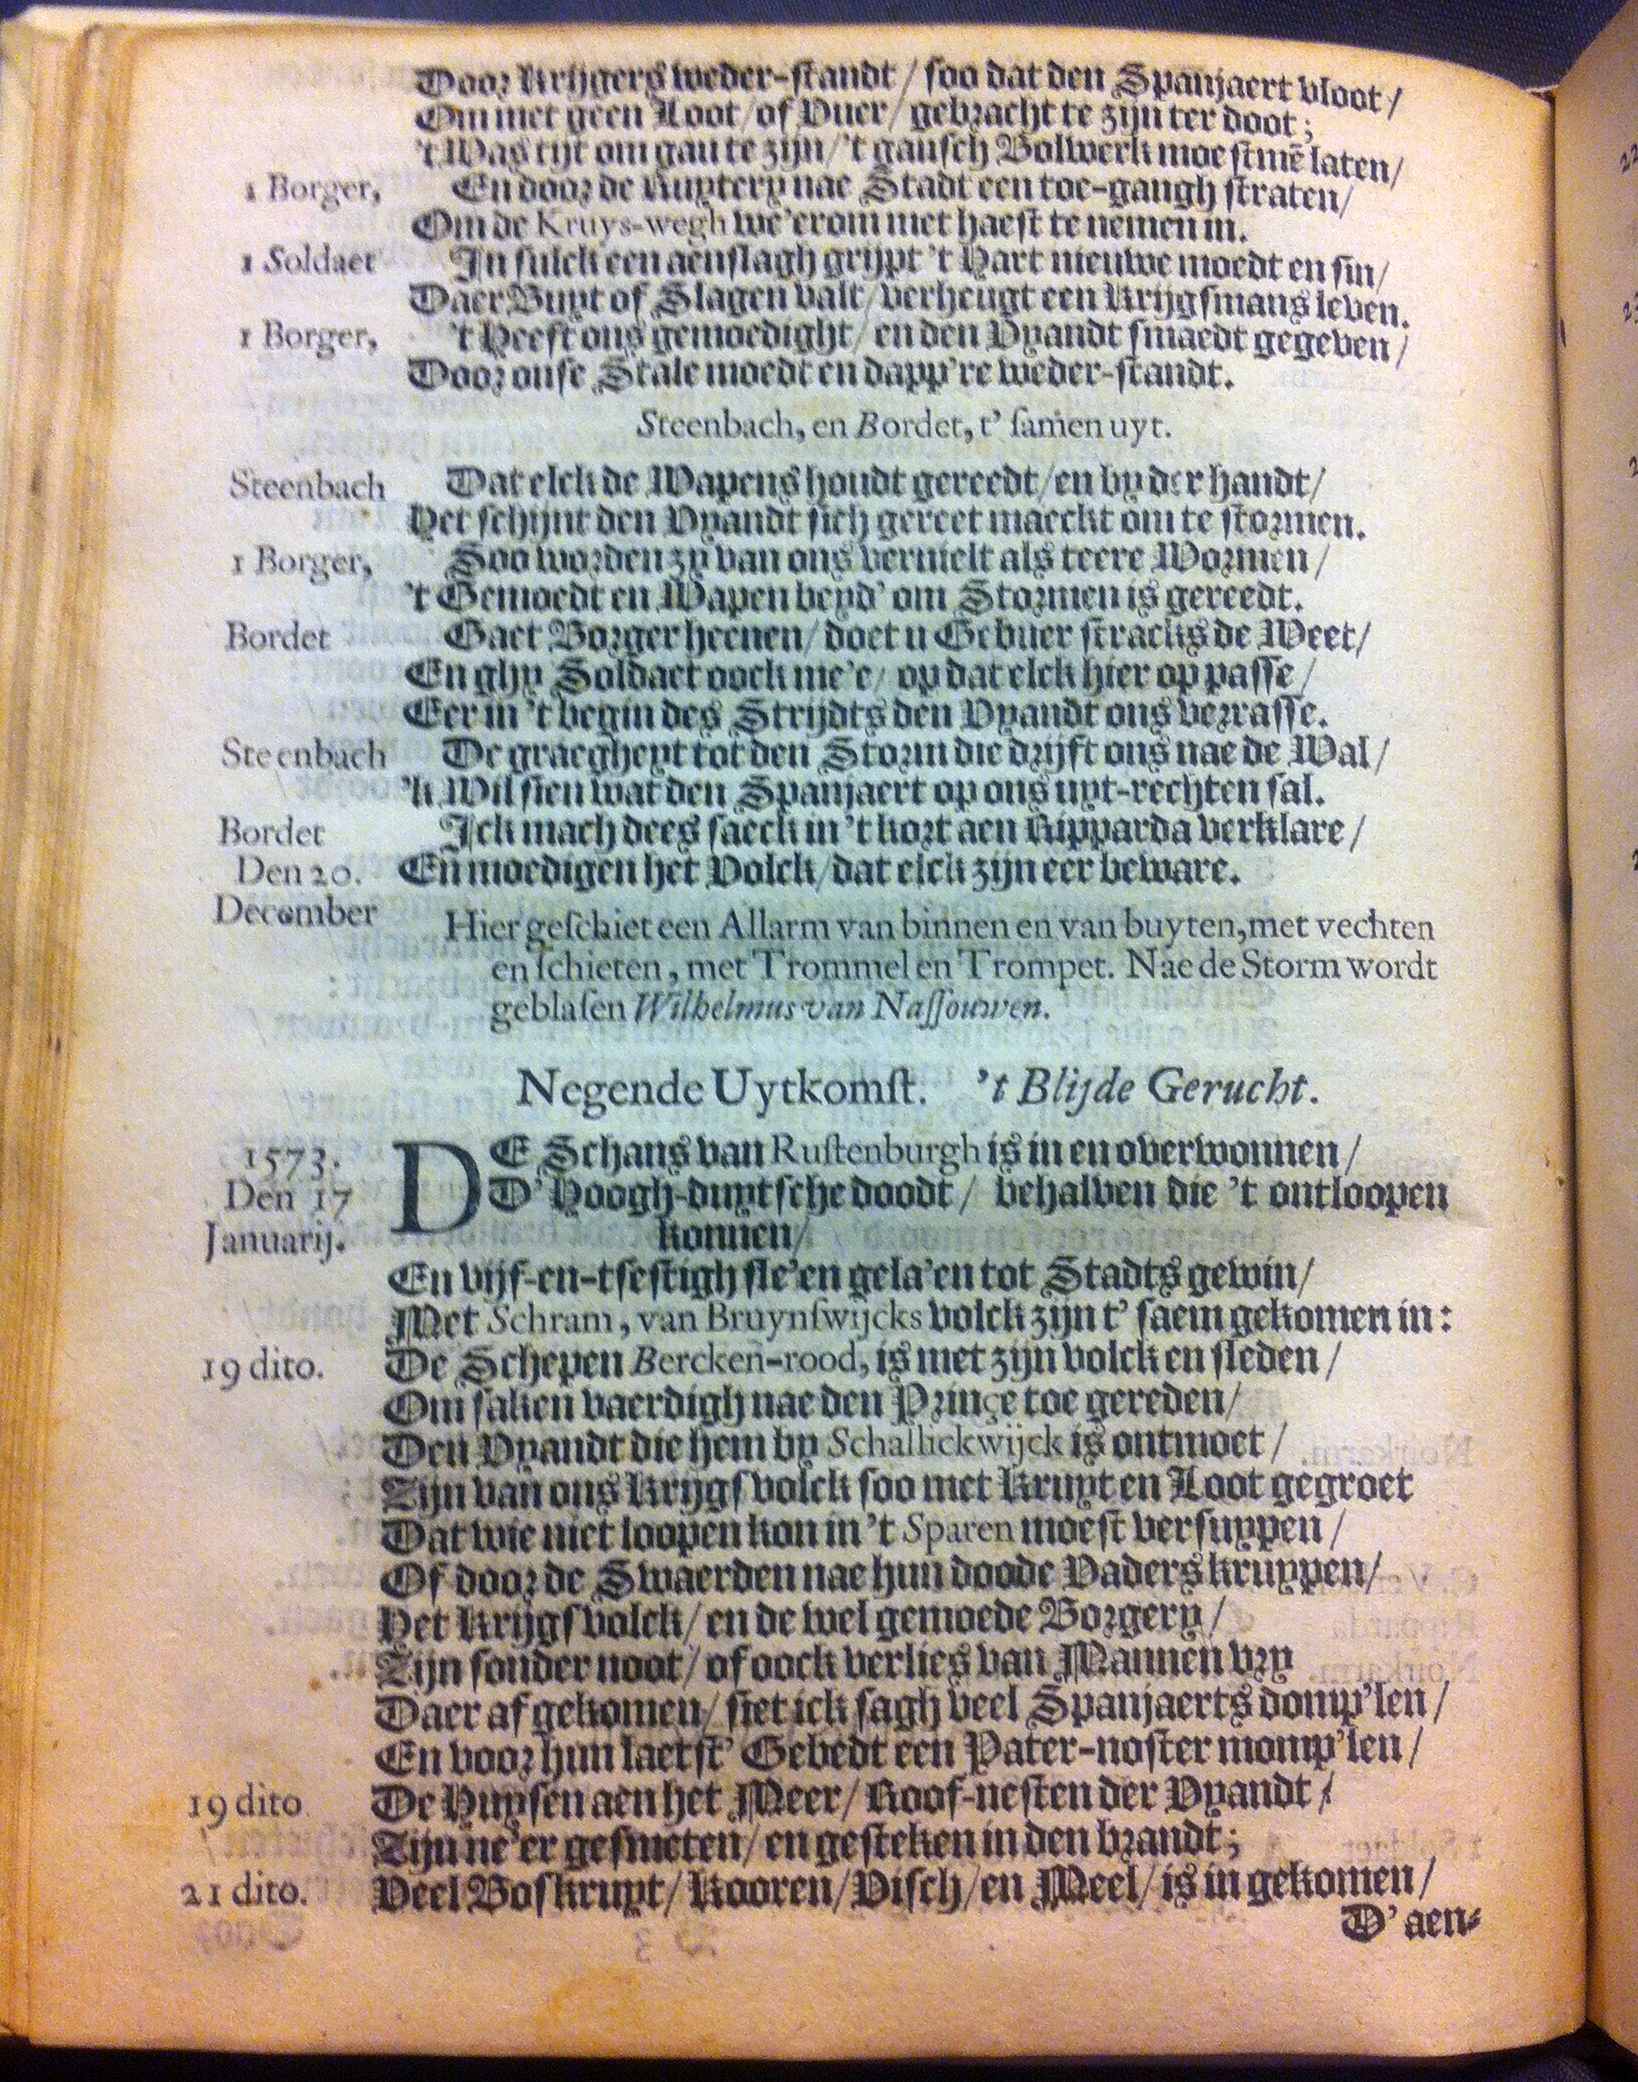 Door Krijgers weder-standt / soo dat den Spanjaert vloot /
Om met geen Loot / of Vuer / gebracht te zijn ter doot;
't Was tijt om gau te zijn / 't gansch Bolwerk moest mē laten /
1 Borger, En door de Ruytery nae Stadt een toe-gangh straten /
Om de Kruys-wegh we'erom met haest te nemen in.
1 Soldaet In sulck een aenslagh grijpt 't Hart nieuwe moedt en sin /
Daer Buyt of Slagen valt / verheugt een Krijgsmans leven.
1 Borger, 't Heeft ons gemoedight / en den Vyandt smaedt gegeven /
Door onse Stale moedt en dapp're weder-standt.
Steenbach, en Bordet, t' samen uyt.
Steenbach Dat elck de Wapens houdt gereedt / en by der handt /
Het schijnt den Vyandt sich gereet maeckt om te stormen.
1 Borger, Soo worden zy van ons vernielt als teere Wormen /
't Gemoedt en Wapen beyd' om Stormen is gereedt.
Bordet Gaet Borger heenen / doet u Gebuer stracks de Weet /
En ghy Soldaet oock me'e / op dat elck hier op passe /
Eer in 't begin des Strijdts den Vyandt ons verrasse.
Steenbach De graegheyt tot den Storm die drijft ons nae de Wal /
'k Wil sien wat den Spanjaert op ons uyt-rechten sal.
Bordet Ick mach dees saeck in 't kort aen Ripparda verklare /
Den 20. En moedigen het Volck / dat elck zijn eer beware.
December
Hier geschiet een Allarm van binnen en van buyten, met vechten
en schieten, met Trommel en Trompet. Nae de Storm wordt
geblasen Wilhelmus van Nassouwen.
Negende Uytkomst. 't Blijde Gerucht.
1573. DE Schans van Rustenburgh is in en overwonnen /
Den 17 D' Hoogh-duytsche doodt / behalven die 't ontloopen
Januarij. konnen /
En vijf-en-tsestigh sle'en gela'en tot Stadts gewin /
Met Schram, van Bruynswijcks volck zijn t' saem gekomen in:
19 dito. De Schepen Bercken-rood, is met zijn volck en sleden /
Om saken vaerdigh nae den Prince toe gereden /
Den Vyandt die hem by Schallickwijck is ontmoet /
Zijn van ons Krijgsvolck soo met Kruyt en Loot gegroet
Dat wie niet loopen kon in 't Sparen moest versuypen /
Of door de Swaerden nae hun doode Vaders kruypen /
Het Krijgsvolck / en de wel gemoede Borgery /
Zijn sonder noot / of oock verlies van Mannen vry
Daer af gekomen / siet ick sagh veel Spanjaerts domp'len /
En voor hun laetst' Gebedt een Pater-noster momp'len /
19 dito De Huysen aen het Meer / Roof-nesten der Vyandt /
Zijn ne'er gesmeten / en gesteken in den brandt;
21 dito. Veel Boskruyt / Kooren / Visch / en Meel / is in gekomen /
D' aen-